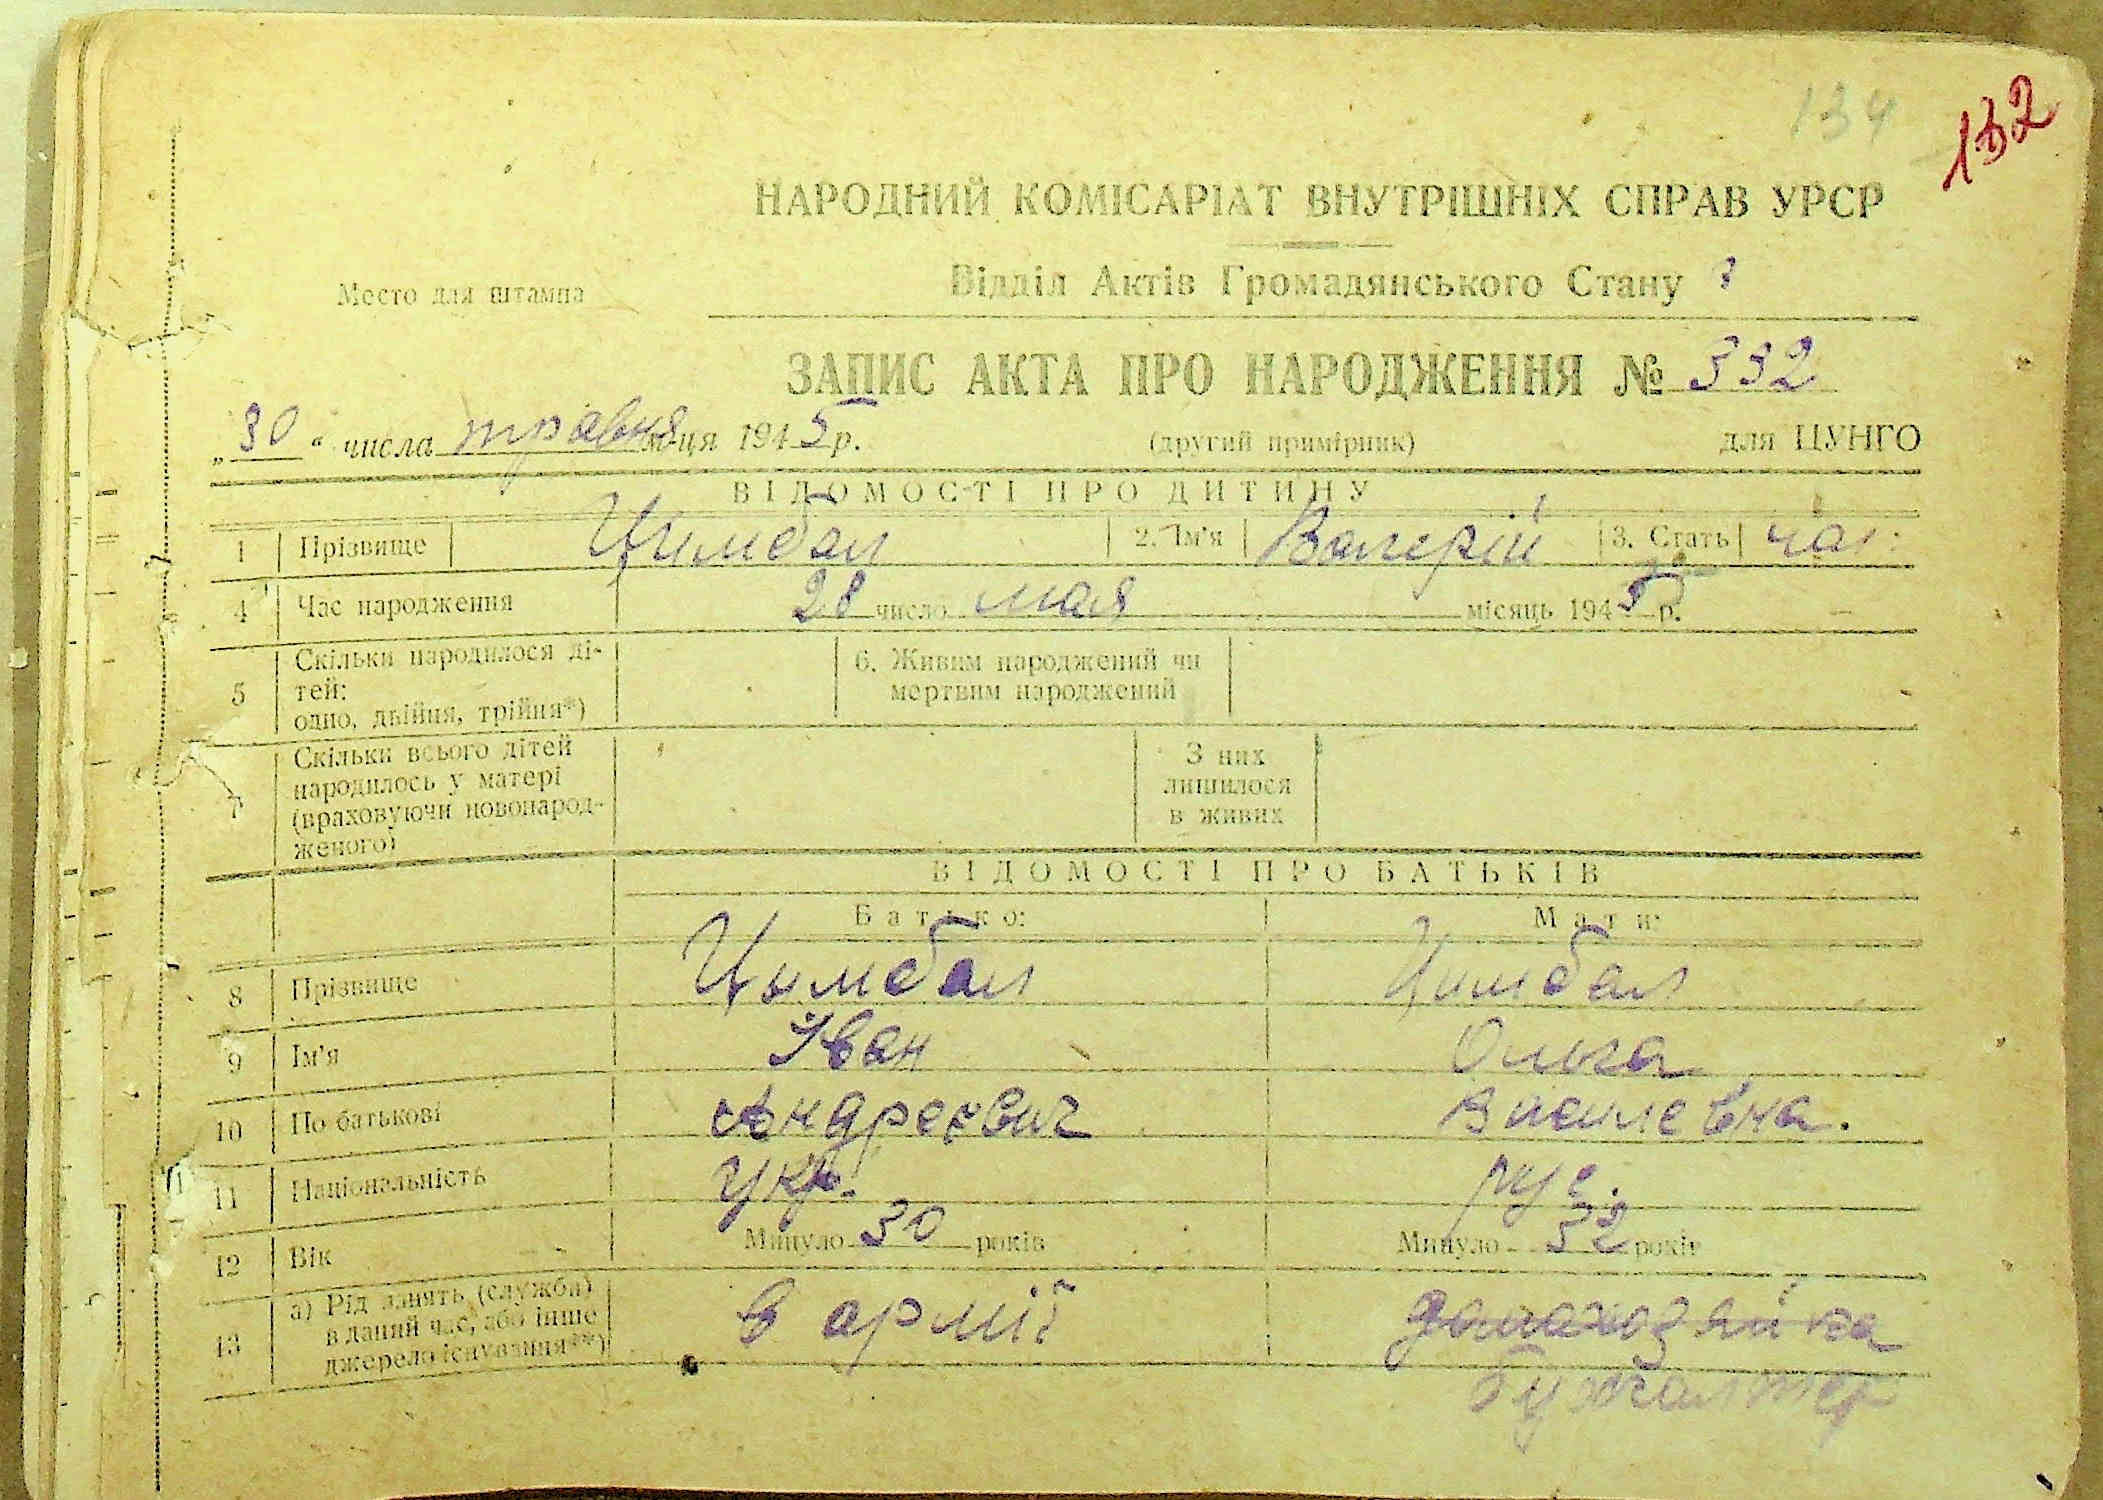 134
132
НАРОДНИЙ КОМІСАРІАТ ВНУТРІШНІХ СПРАВ УРСР
Место для штампа
Відділ Актів Громадянського Стану
ЗАПИС АКТА ПРО НАРОДЖЕННЯ № 332
„30“ числа травня м-ця 1945 р. (другий примірник) для ЦУНГО
ВІДОМОСТІ ПРО ДИТИНУ
1 Прізвище Цимбал 2. Ім'я Валерій 3. Стать чол.
4 Час народження 28 число мая місяць 1945 р.
5 Скільки народилося ді-
тей:
одно, двійня, трійня*)
6. Живим народжений чи
мертвим народжений
7 Скільки всього дітей
народилось у матері
(враховуючи новонарод-
женого)
З них
лишилося
в живих
ВІДОМОСТІ ПРО БАТЬКІВ
Батько: Мати:
8 Прізвище Цымбал Цимбал
9 Ім'я Іван Ольга
10 По батькові Андреевич Василевна.
11 Національність Укр. рус.
12 Вік Минуло 30 років Минуло 32 років
13 а) Рід занять (служба)
в даний час, або інше
джерело існування**)
в армії домахозяйка
бухгалтер